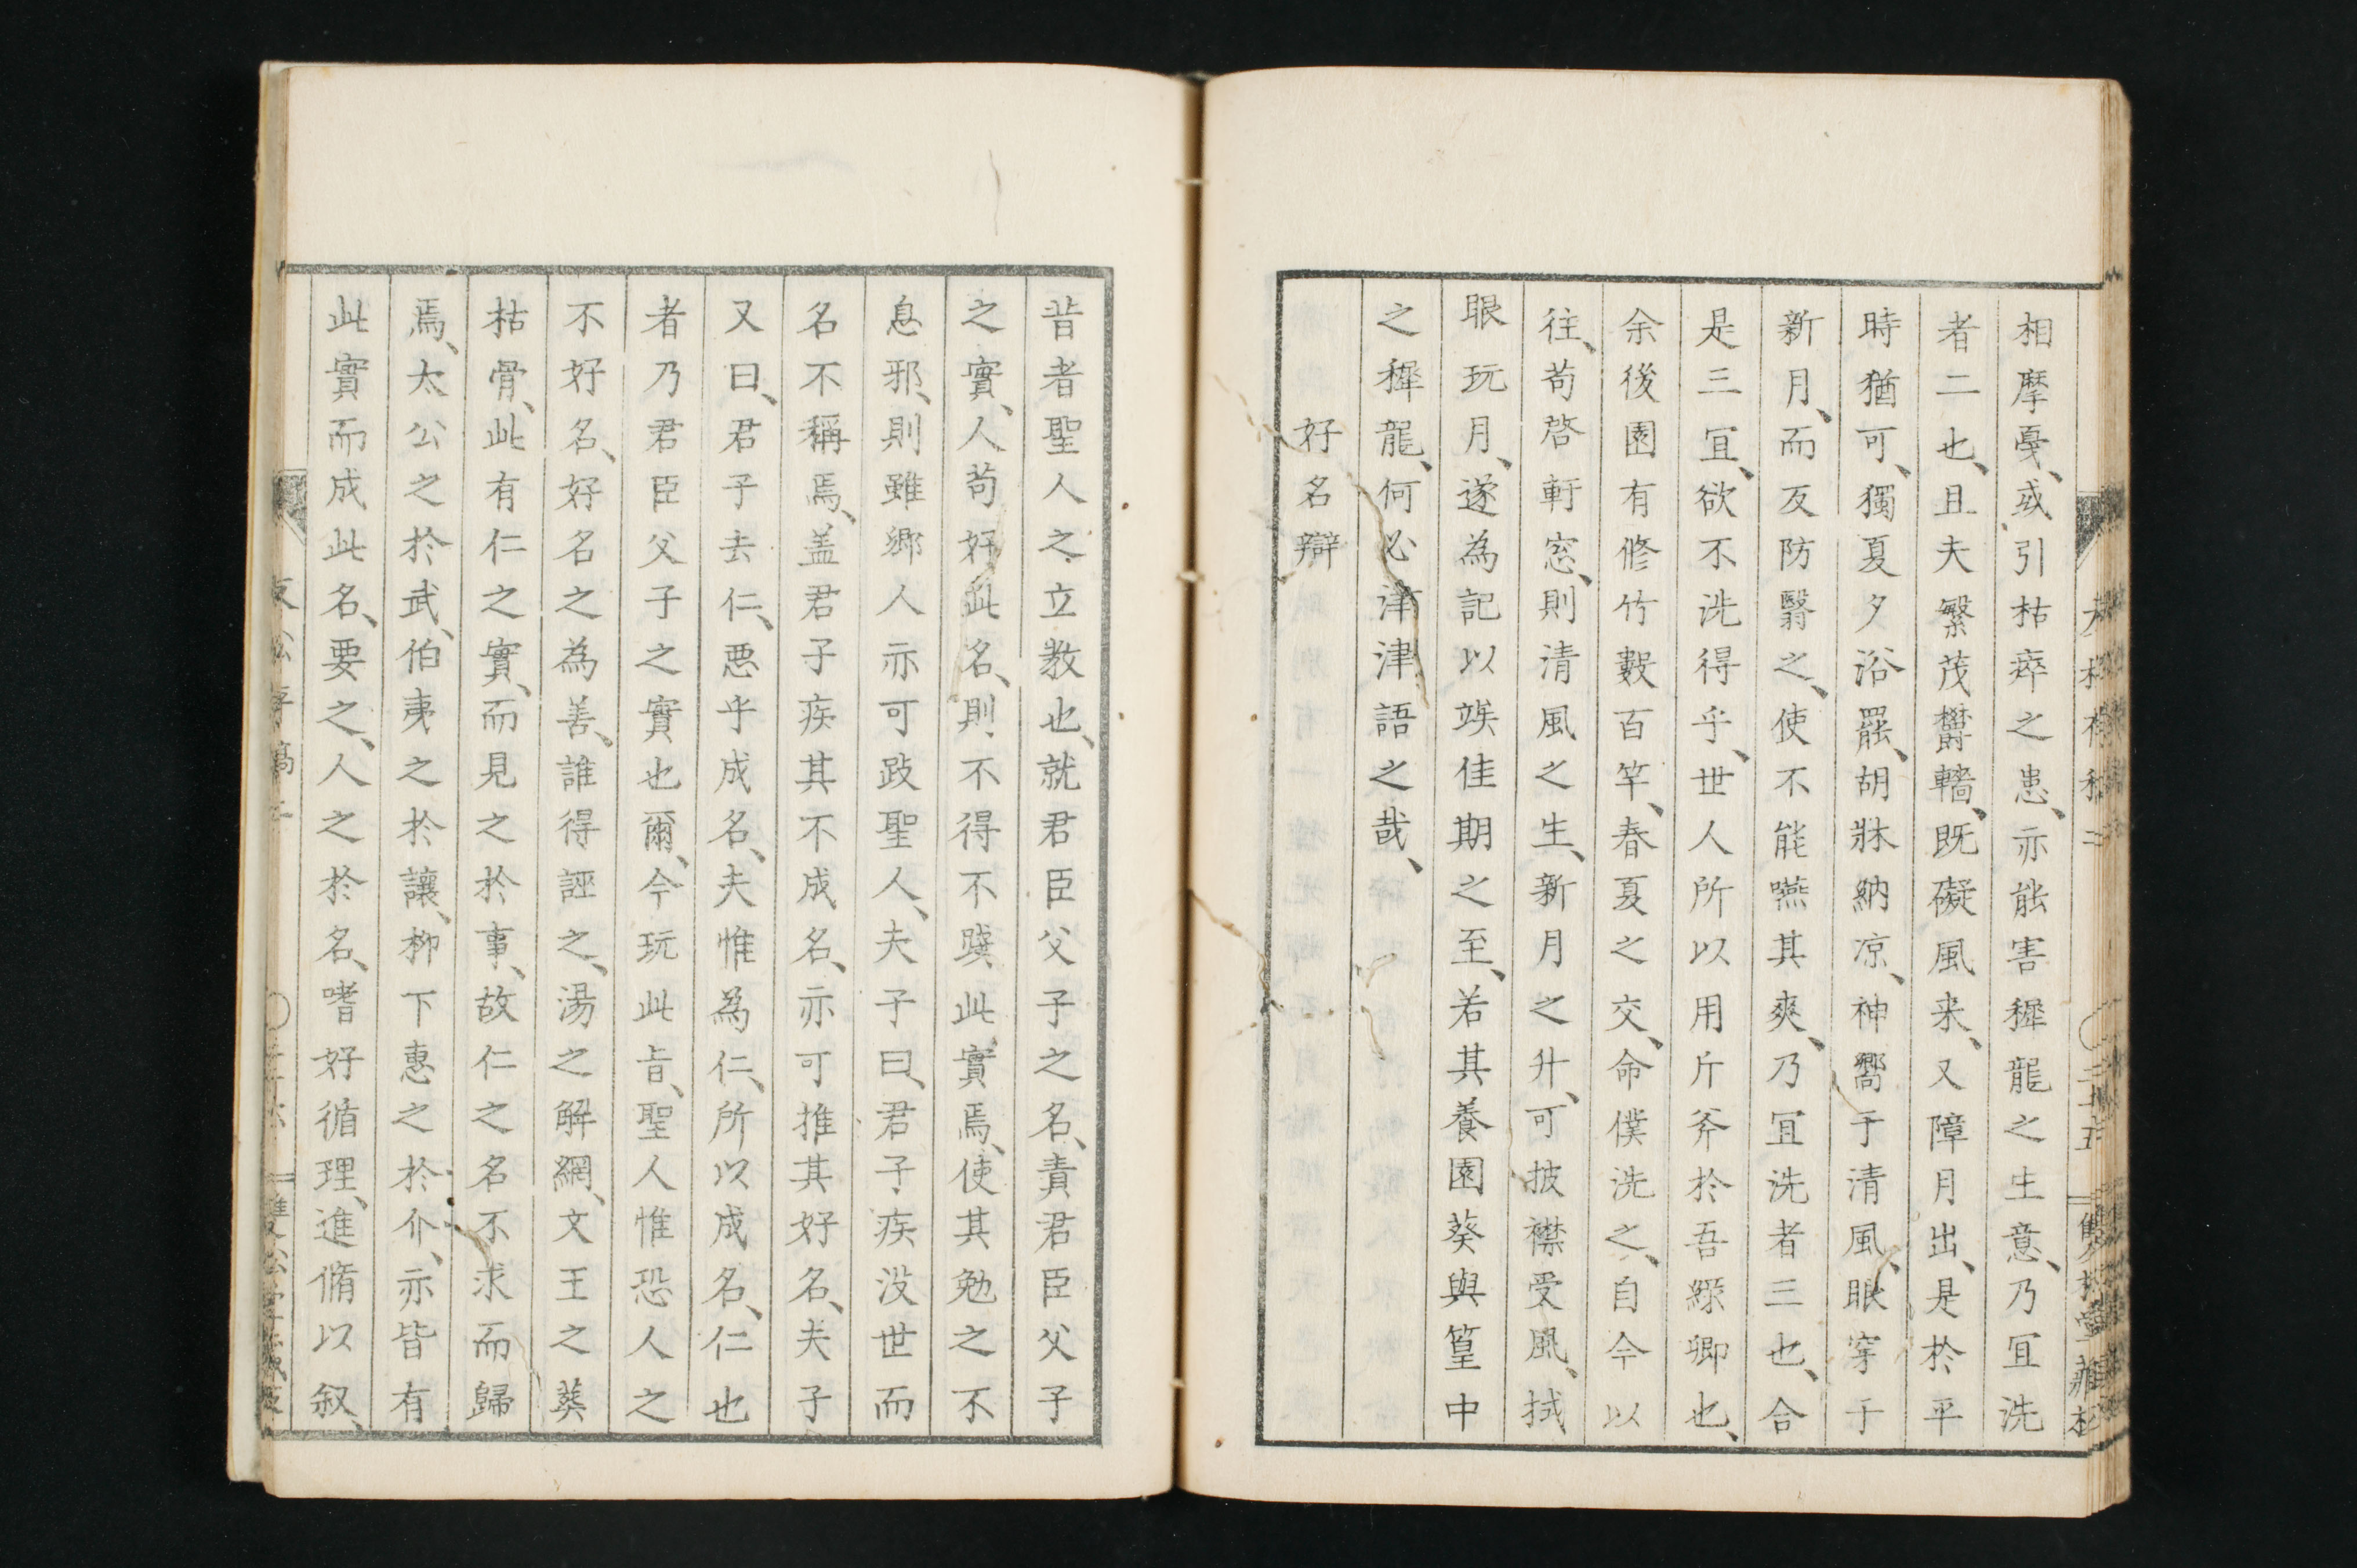 相摩戞、或引枯瘁之患、亦能害穉龍之生意、乃宜洗
者二也、且夫繁茂欝轖、既礙風来、又障月出、是於平
時猶可、獨夏夕浴罷、胡牀納凉、神嚮于清風、眼穿于
新月、而反防翳之、使不能嚥其爽、乃宜洗者三也、合
是三宜、欲不洗得乎、世人所以用斤斧於吾緑卿也、
余後園有修竹數百竿、春夏之交、命僕洗之、自今以
往、苟啓軒窓、則清風之生、新月之升、可披襟受風、拭
眼玩月、遂為記以竢佳期之至、若其養園葵與篁中
之穉龍、何必津津語之哉、
好名辯
昔者聖人之立教也、就君臣父子之名、責君臣父子
之實、人苟好此名、則不得不踐此實焉、使其勉之不
息邪、則雖郷人亦可跂聖人、夫子曰、君子疾没世而
名不稱焉、盖君子疾其不成名、亦可推其好名、夫子
又曰、君子去仁、悪乎成名、夫惟為仁、所以成名、仁也
者乃君臣父子之實也爾、今玩此旨、聖人惟恐人之
不好名、好名之為善、誰得誣之、湯之解網、文王之葬
枯骨、此有仁之實、而見之於事、故仁之名不求而歸
焉、太公之於武、伯夷之於讓、柳下惠之於介、亦皆有
此實而成此名、要之、人之於名、嗜好循理、進脩以叙、